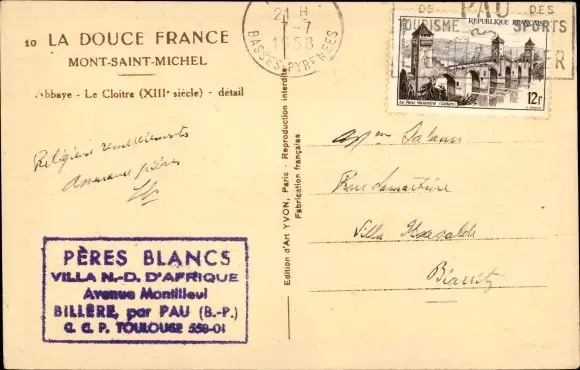 10 LA DOUCE FRANCE
MONT-SAINT-MICHEL
Abbaye - Le Cloitre (XIIIe siècle) - détail
Religieux remerciements
Assurance prières
PÈRES BLANCS
VILLA N.-D. D'AFRIQUE
Avenue Montilleul
BILLÈRE, par PAU (B.-P.)
C. C. P. TOULOUSE 558-01
Edition d'Art YVON, Paris - Reproduction interdite
Fabrication française
21 H
7-7
1958
BASSES-PYRENEES
PAU DES
TOURISME SPORTS
REPUBLIQUE FRANÇAISE
Le Pont Valentré (Cahors)
12F
Rue Lamartine
Villa
Biarritz